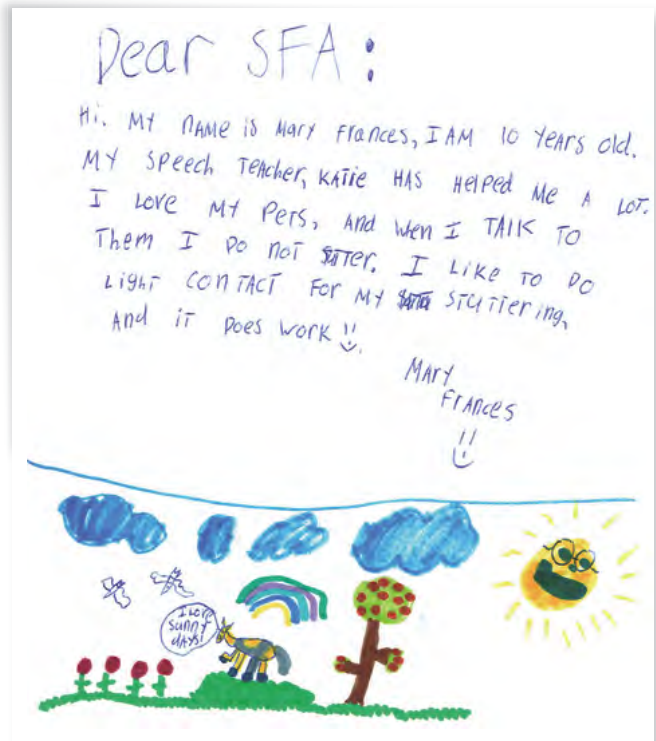 Dear SFA:
Hi. My name is Mary Frances, I am 10 years old.
My speech teacher, Katie has helped me a lot.
I love my pets, and wen I talk to
them I do not sutter. I like to do
light contact for my stuttering,
and it does work!!
Mary
Frances
!!
I love
sunny
days!